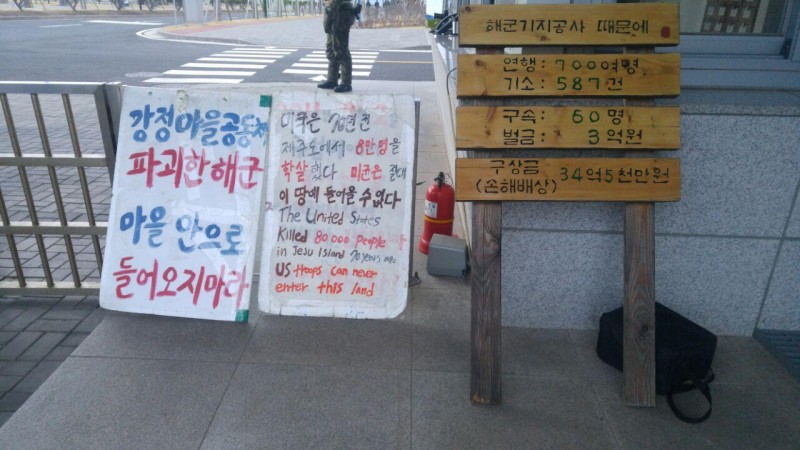 강정마을공동체
파괴한 해군
마을 안으로
들어오지마라
미국은 70년전
제주도에서 8만명을
학살했다 미군은 절대
이 땅에 들어올 수 없다
The United States
Killed 80000 people
in Jesu Island 70 years ago
US troops can never
enter this land
해군기지공사 때문에
연행: 700여명
기소: 587건
구속: 60명
벌금: 3억원
구상금
(손해배상) 34억5천만원